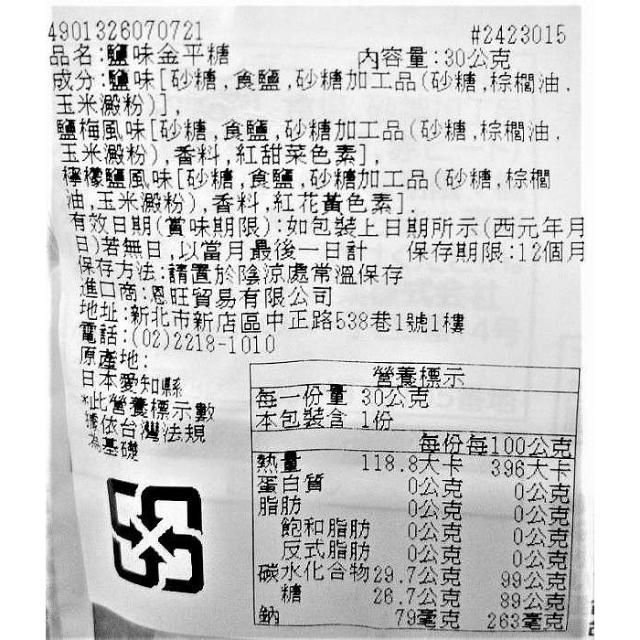 4901326070721 #2423015
品名:鹽味金平糖 內容量:30公克
成分:鹽味[砂糖,食鹽,砂糖加工品(砂糖,棕櫚油,
玉米澱粉)],
鹽梅風味[砂糖,食鹽,砂糖加工品(砂糖,棕櫚油,
玉米澱粉),香料,紅甜菜色素],
檸檬鹽風味[砂糖,食鹽,砂糖加工品(砂糖,棕櫚
油,玉米澱粉),香料,紅花黃色素].
有效日期(賞味期限):如包裝上日期所示(西元年月
日)若無日,以當月最後一日計 保存期限:12個月
保存方法:請置於陰涼處常溫保存
進口商:恩旺貿易有限公司
地址:新北市新店區中正路538巷1號1樓
電話:(02)2218-1010
原產地:
日本愛知縣
*此營養標示數
據依台灣法規
為基礎
營養標示
每一份量 30公克
本包裝含 1份
每份每100公克
熱量 118.8大卡 396大卡
蛋白質 0公克 0公克
脂肪 0公克 0公克
飽和脂肪 0公克 0公克
反式脂肪 0公克 0公克
碳水化合物29.7公克 99公克
糖 26.7公克 89公克
鈉 79毫克 263毫克